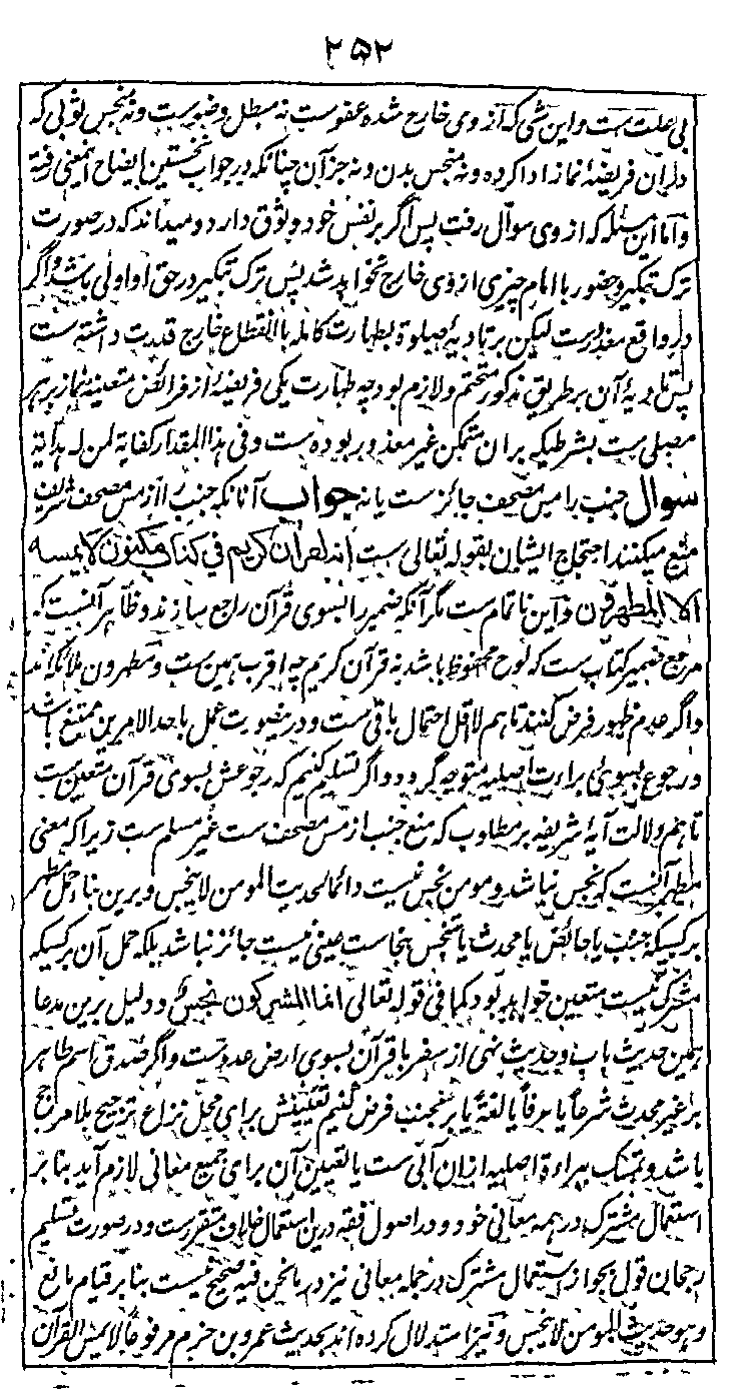 ۲۵۲
بی علت ست و این شی که از وی خارج شده عفوست نه مبطل وضوست و نه منجس ثوبی که
دران فریضهٔ نماز ادا کرده و نه منجس بدن و نه جز آن چنانکه در جواب نخستین ایضاح اینمعنی رفته
و اما این مسئله که از وی سوال رفت پس اگر بر نفس خود وثوق دارد و میداند که در صورت
ترک تبکیر و حضور با امام چیزی از وی خارج نخواهد شد پس ترک تبکیر در حق او اولی باشد و اگر
در واقع معذورست لیکن بر تادیهٔ صلوة بطهارت کامله با انقطاع خارج قدرت داشته ست
پس تادیهٔ آن بر طریق مذکور متحتم و لازم بود چه طهارت یکی فریضه از فرائض متعینهٔ نماز بر هر
مصلی ست بشرطیکه بران متمکن غیر معذور بوده ست وفی هذا المقدار کفایة لمن له هدایة
سوال جنب را مس مصحف جائز ست یا نه جواب آنانکه جنب را از مس مصحف شریف
منع میکنند احتجاج ایشان بقوله تعالی ست انه لقرآن کریم فی کتاب مکنون لا یمسه
الا المطهرون و این ناتمام ست مگر آنکه ضمیر را بسوی قرآن راجع سازند و ظاهر آنست که
مرجع ضمیر کتاب ست که لوح محفوظ باشد نه قرآن کریم چه اقرب همین ست و مطهرون ملائکه اند
و اگر عدم ظهور فرض کنند تاهم لا اقل احتمال باقی ست و درینصورت عمل باحد الامرین ممتنع باشد
و رجوع بسوی براءت اصلیه متوجه گردد و اگر تسلیم کنیم که رجوعش بسوی قرآن متعین ست
تاهم دلالت آیهٔ شریفه بر مطلوب که منع جنب از مس مصحف ست غیر مسلم ست زیرا که معنی
مطهر آنست که نجس نباشد و مومن نجس نیست دائما لحدیث المومن لا ینجس و برین بناء حمل مطهر
بر کسیکه جنب یا حائض یا محدث یا متنجس بنجاست عینی نیست جائز نباشد بلکه حمل آن بر کسیکه
مشرک نیست متعین خواهد بود کما فی قوله تعالی انما المشرکون نجس و دلیل برین مدعا
همین حدیث باب و حدیث نهی از سفر با قرآن بسوی ارض عدوست و اگر صدق اسم طاهر
بر غیر محدث شرعاً یا عرفاً یا لغةً یا بر جنب فرض کنیم تعیینش برای محل نزاع ترجیح بلا مرجح
باشد و تمسک ببراءة اصلیه ازان آبی ست یا تعیین آن برای جمیع معانی لازم آید بنا بر
استعمال مشترک در همه معانی خود و در اصول فقه درین استعمال خلاف متقررست و در صورت تسلیم
رجحان قول بجواز استعمال مشترک در جمله معانی نیز در ما نحن فیه صحیح نیست بنا بر قیام مانع
و هو حدیث المومن لا ینجس و نیز استدلال کرده اند بحدیث عمرو بن حزم مرفوعاً لا یمس القرآن